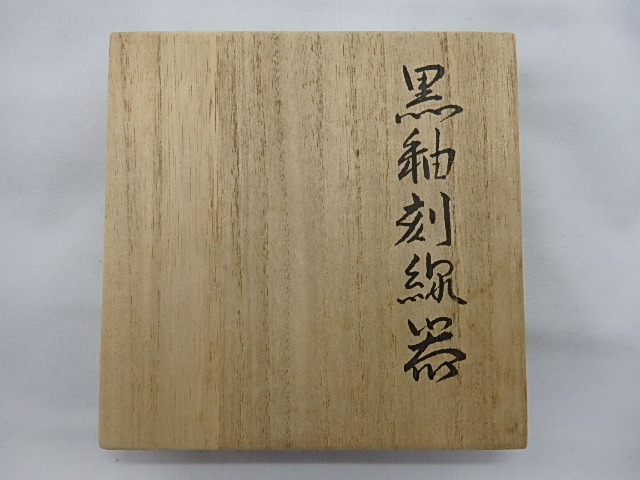 黒釉刻線器